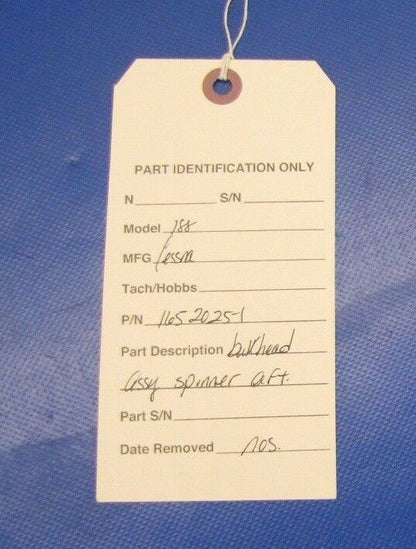 PART IDENTIFICATION ONLY
N S/N
Model 188
MFG Cessna
Tach/Hobbs
P/N 1652025-1
Part Description bulkhead
assy spinner aft.
Part S/N
Date Removed nos.